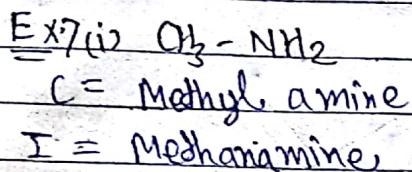 Ex.7(i) CH3-NH2
C = Methyl amine
I = Methanamine